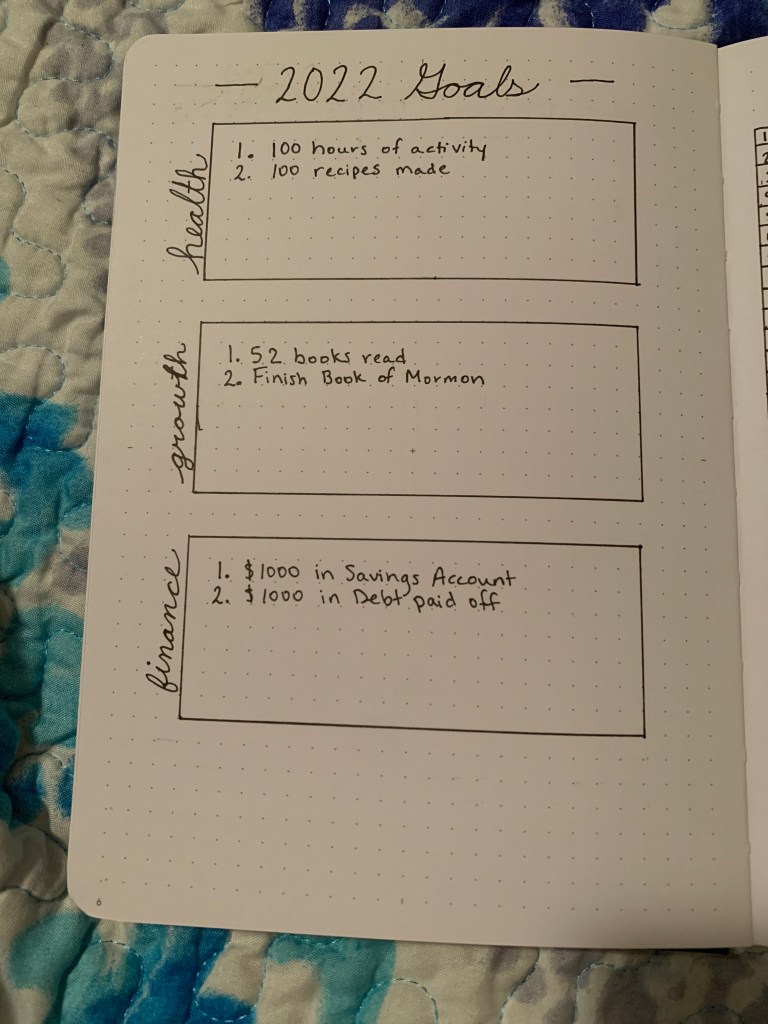 — 2022 Goals —
health
1. 100 hours of activity
2. 100 recipes made
growth
1. 52 books read
2. Finish Book of Mormon
finance
1. $1000 in Savings Account
2. $1000 in Debt paid off
6